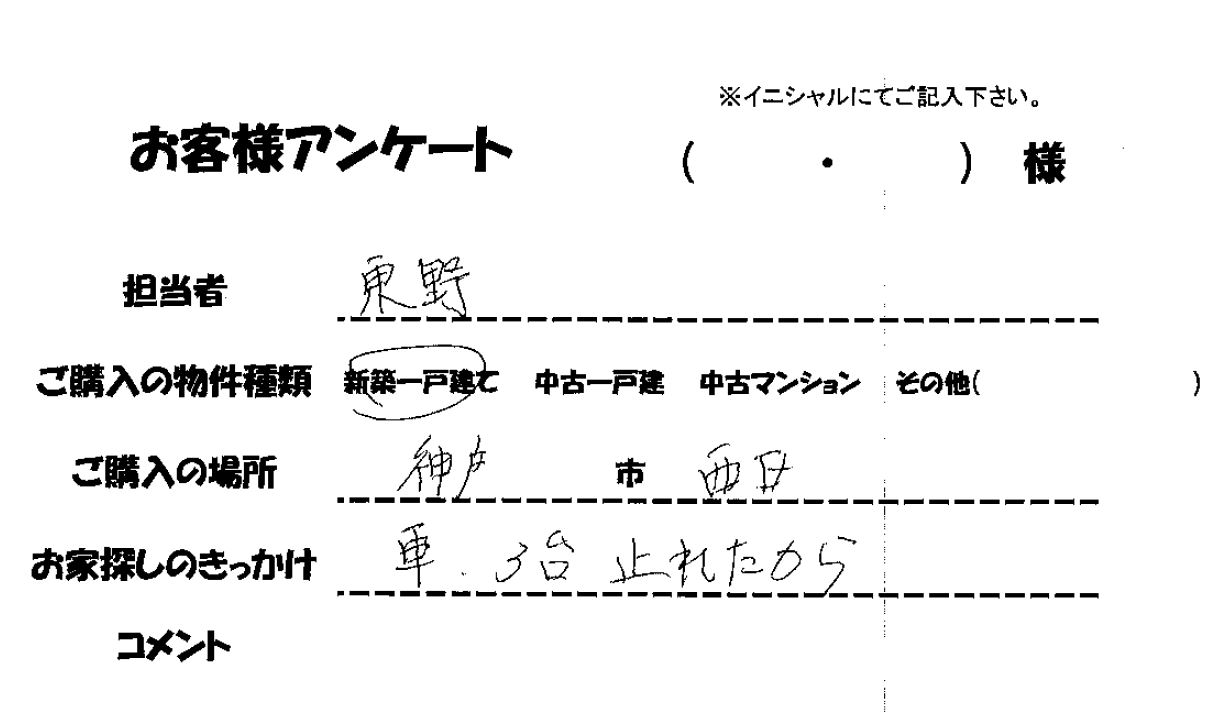 ※イニシャルにてご記入下さい。
お客様アンケート ( ・ ) 様
担当者 東野
ご購入の物件種類 新築一戸建て 中古一戸建 中古マンション その他( )
ご購入の場所 神戸 市 西区
お家探しのきっかけ 車.3台 止れたから
コメント